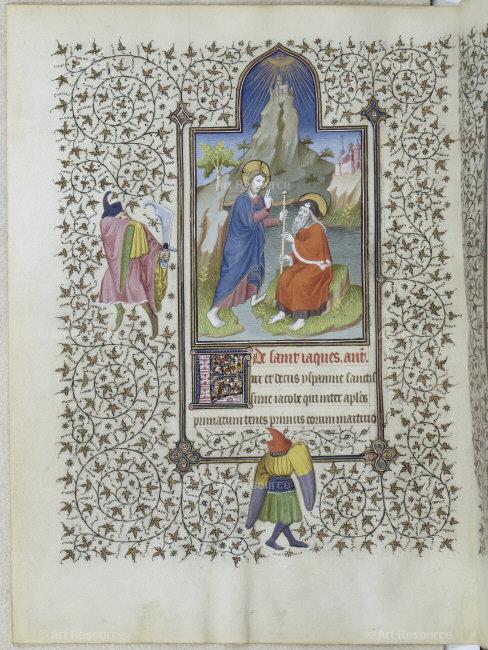 De saint iaques. ant.
Lux et decus yspanie sanctis
sime iacobe qui inter aplos
primatum tenes primus eorum martirio
© Art Resource
© Art Resource